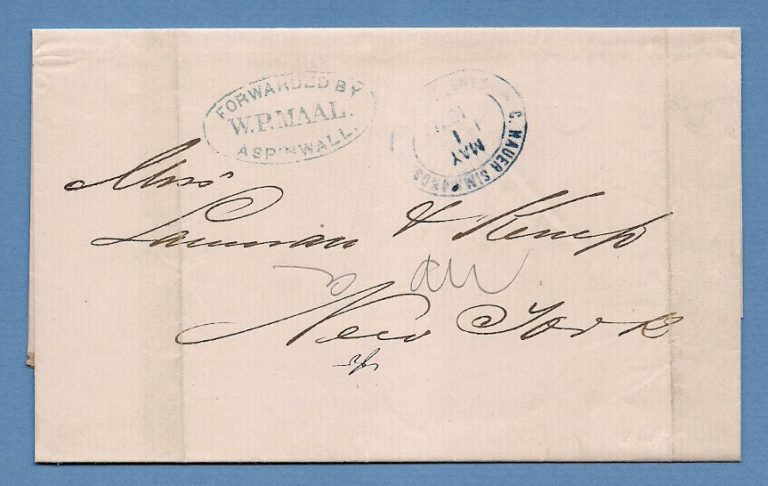 FORWARDED BY
W.P. MAAL.
ASPINWALL.
C. NAUER SIM
MAY
1
Mess
Lanman & Kemp
New York